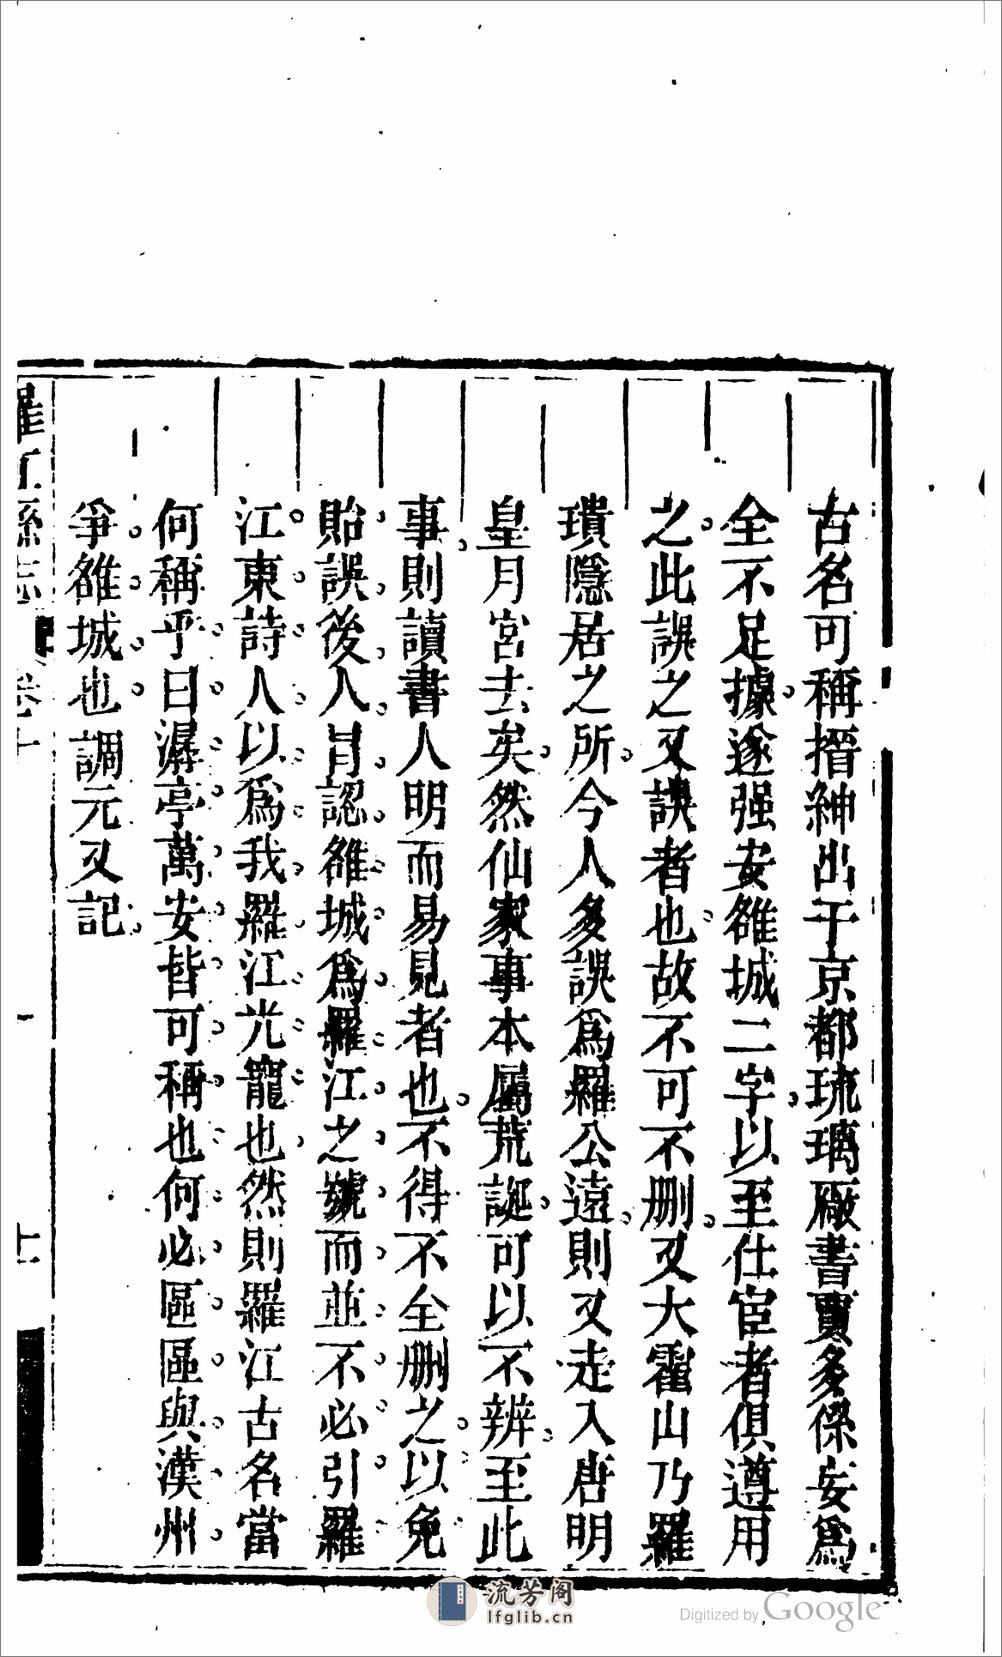 古名可稱搢紳出于京都琉璃廠書賈多係妄爲
全不足據遂强安雒城二字以至仕宦者俱遵用
之此誤之又誤者也故不可不删又大霍山乃羅
璝隱居之所今人多誤爲羅公遠則又走入唐明
皇月宮去矣然仙家事本屬荒誕可以不辨至此
事則讀書人明而易見者也不得不全删之以免
貽誤後人冐認雒城爲羅江之號而並不必引羅
江東詩人以爲我羅江光寵也然則羅江古名當
何稱乎曰潺亭萬安皆可稱也何必區區與漢州
爭雒城也調元又記
羅江縣志 卷十 十
流芳阁
lfglib.cn
Digitized by Google